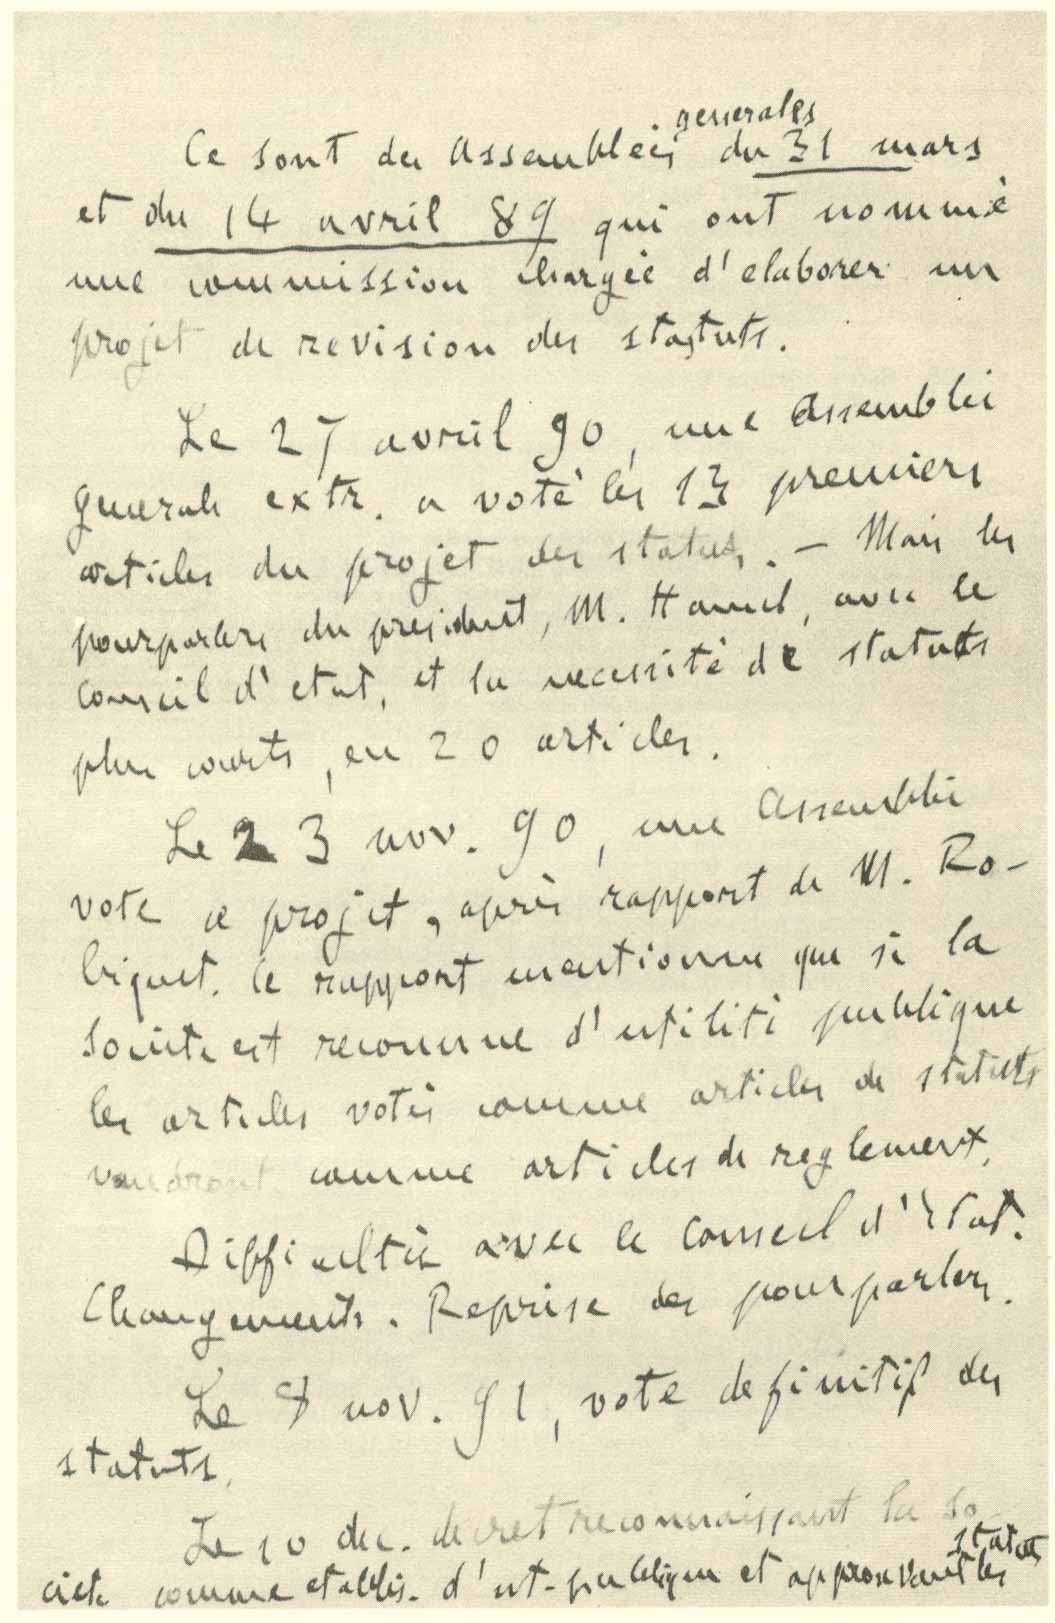 Ce sont des Assemblées générales du 31 mars
et du 14 avril 89 qui ont nommé
une commission chargée d'elaborer un
projet de revision des statuts.
Le 27 avril 90, une Assemblée
generale extr. a voté les 13 premiers
articles du projet des statuts. — Mais les
pourparlers du president, M. Hamel, avec le
Conseil d'etat, et la necessité de statuts
plus courts, en 20 articles.
Le 23 nov. 90, une Assemblée
vote ce projet, après rapport de M. Ro-
biquet. Ce rapport mentionne que si la
Société est reconnue d'utilité publique
les articles votés comme articles de statuts
vaudront comme articles de reglement.
Difficultés avec le Conseil d'Etat.
Changements. Reprise des pourparlers.
Le 8 nov. 91, vote definitif des
statuts.
Le 10 dec. decret reconnaissant la So-
ciété comme etablis. d'ut. publique et approuvant les statuts